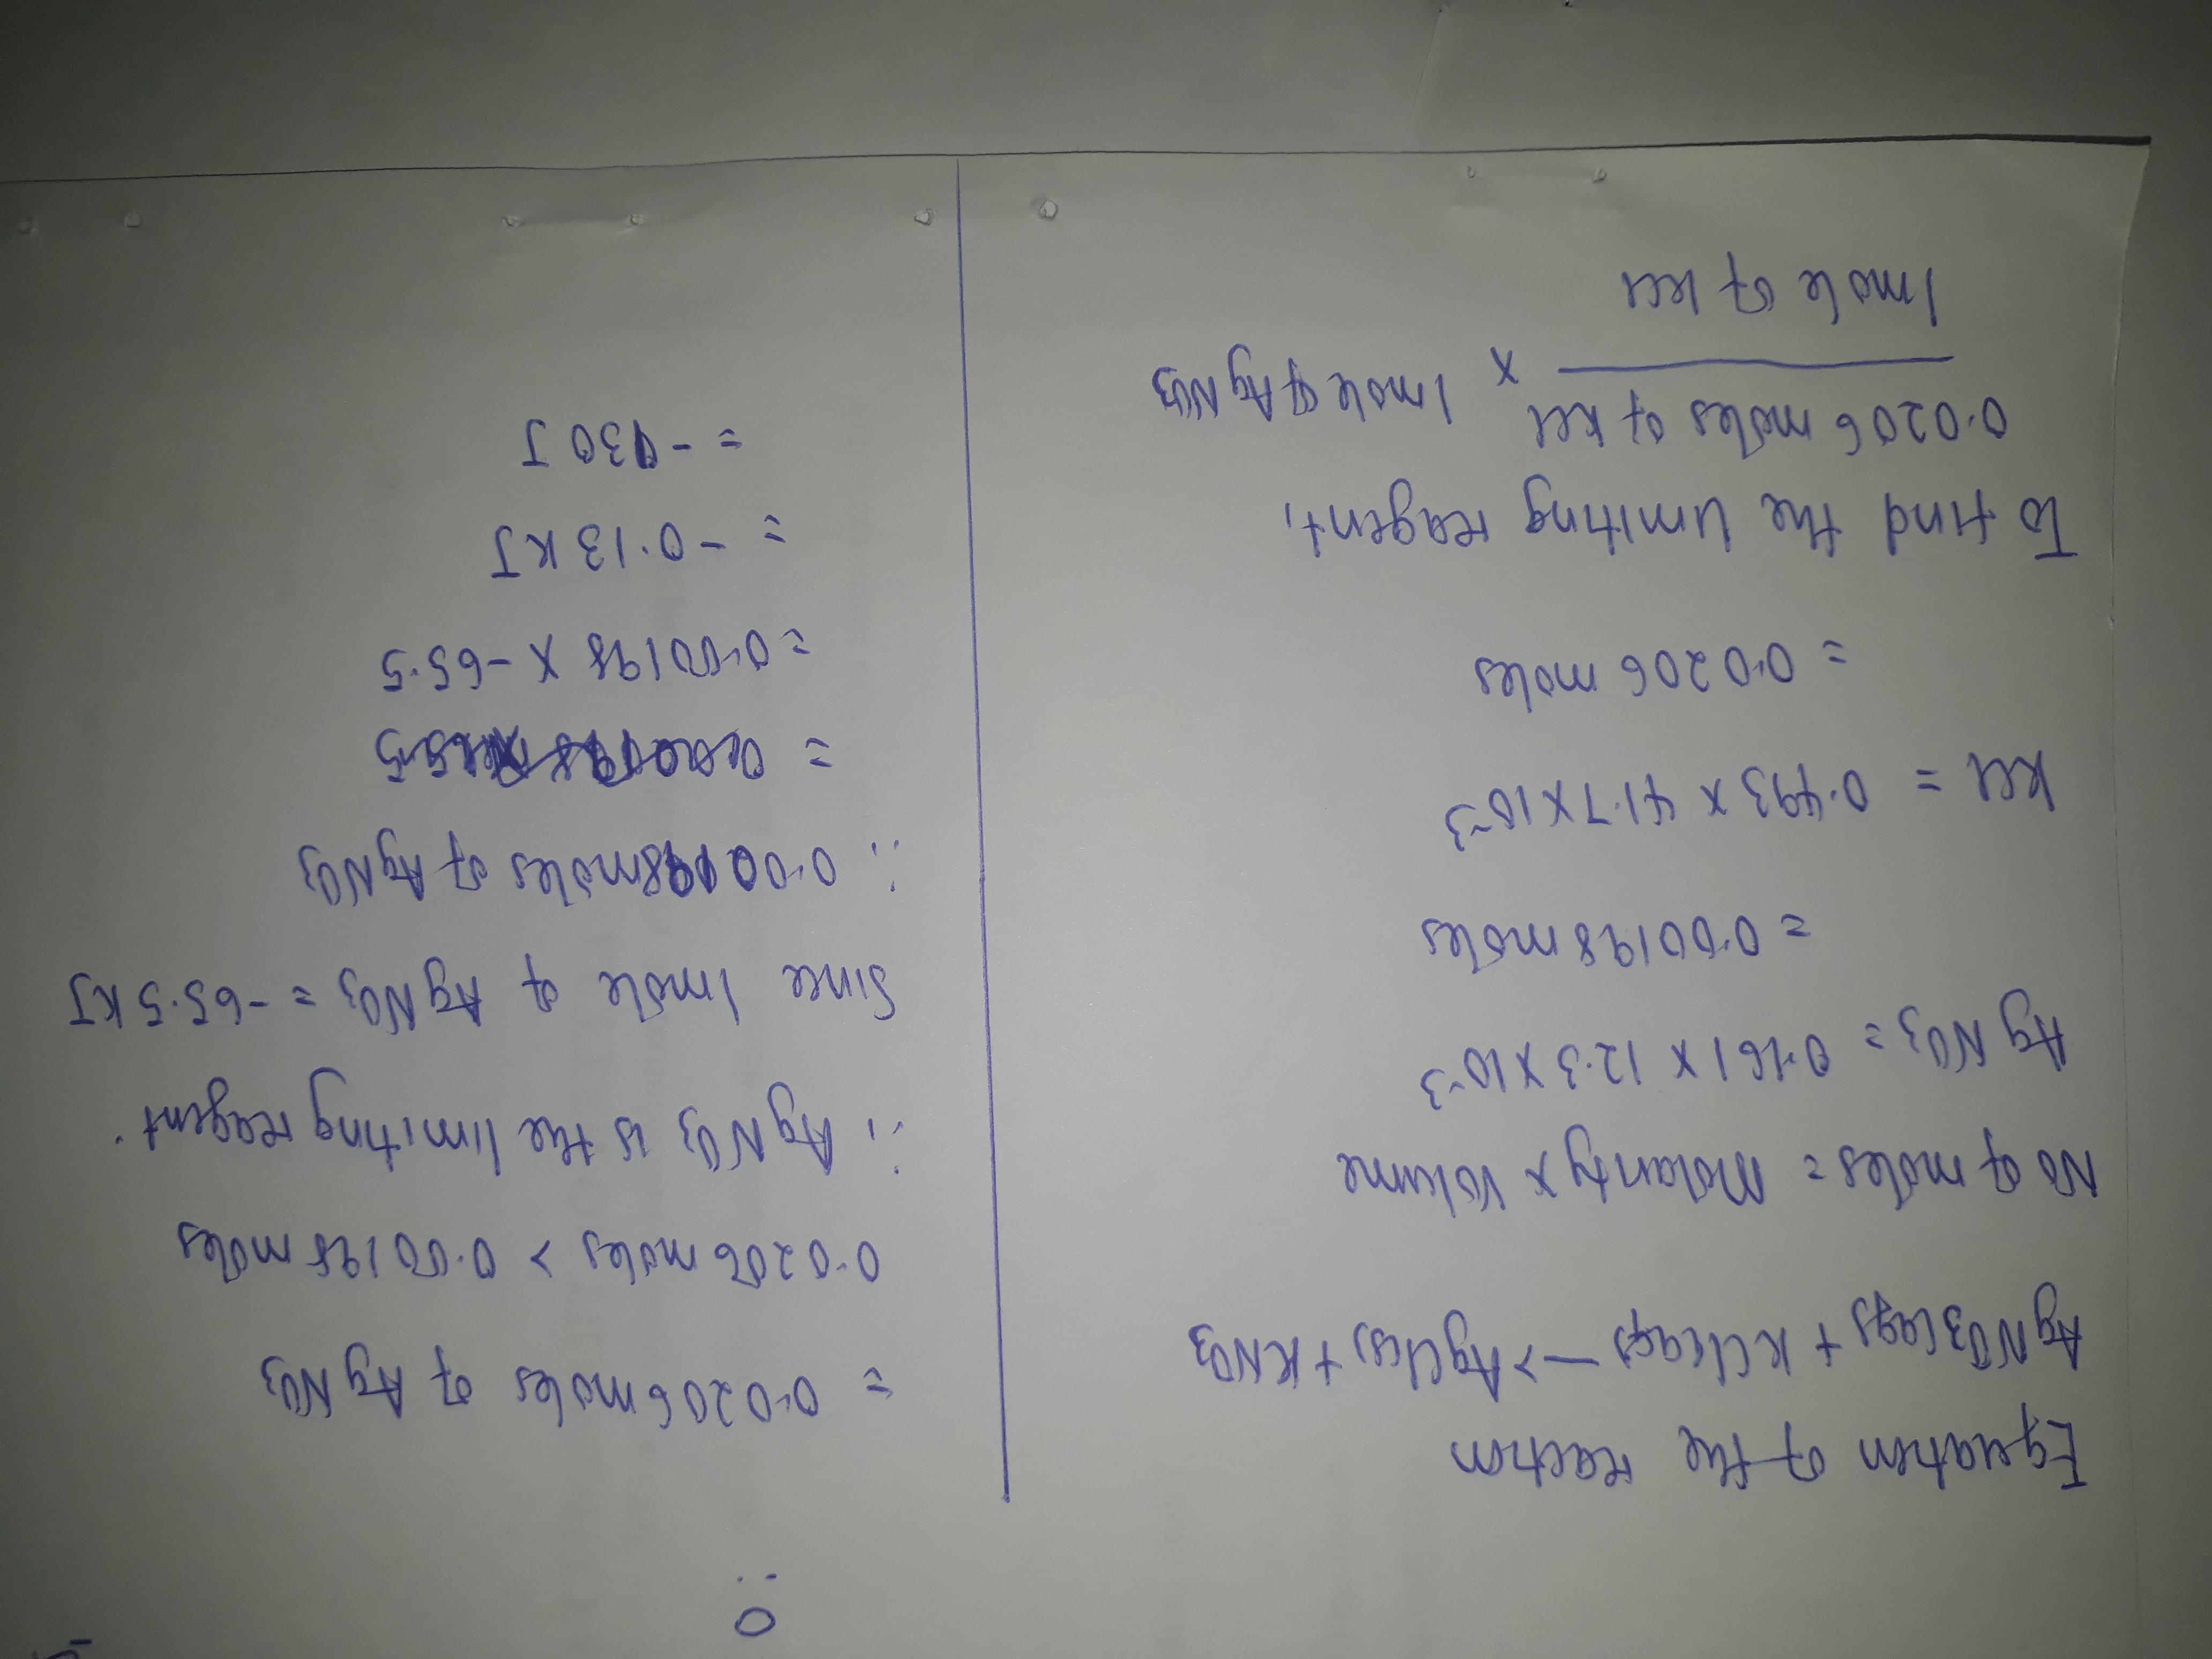 Equation of the reaction
AgNO3(aq) + KCl(aq) —> AgCl(s) + KNO3
No of moles = Molarity x Volume
AgNO3 = 0.161 x 12.3 x 10-3
= 0.00198 moles
KCl = 0.493 x 41.7 x 10-3
= 0.0206 moles
To find the limiting reagent,
0.0206 moles of KCl x 1 mole of AgNO3
1 mole of KCl
= 0.0206 moles of AgNO3
0.0206 moles > 0.00198 moles
∴ AgNO3 is the limiting reagent.
Since 1 mole of AgNO3 = -65.5 KJ
∴ 0.00198 moles of AgNO3
= 0.00198 x -65.5
= -0.13 KJ
= -130 J